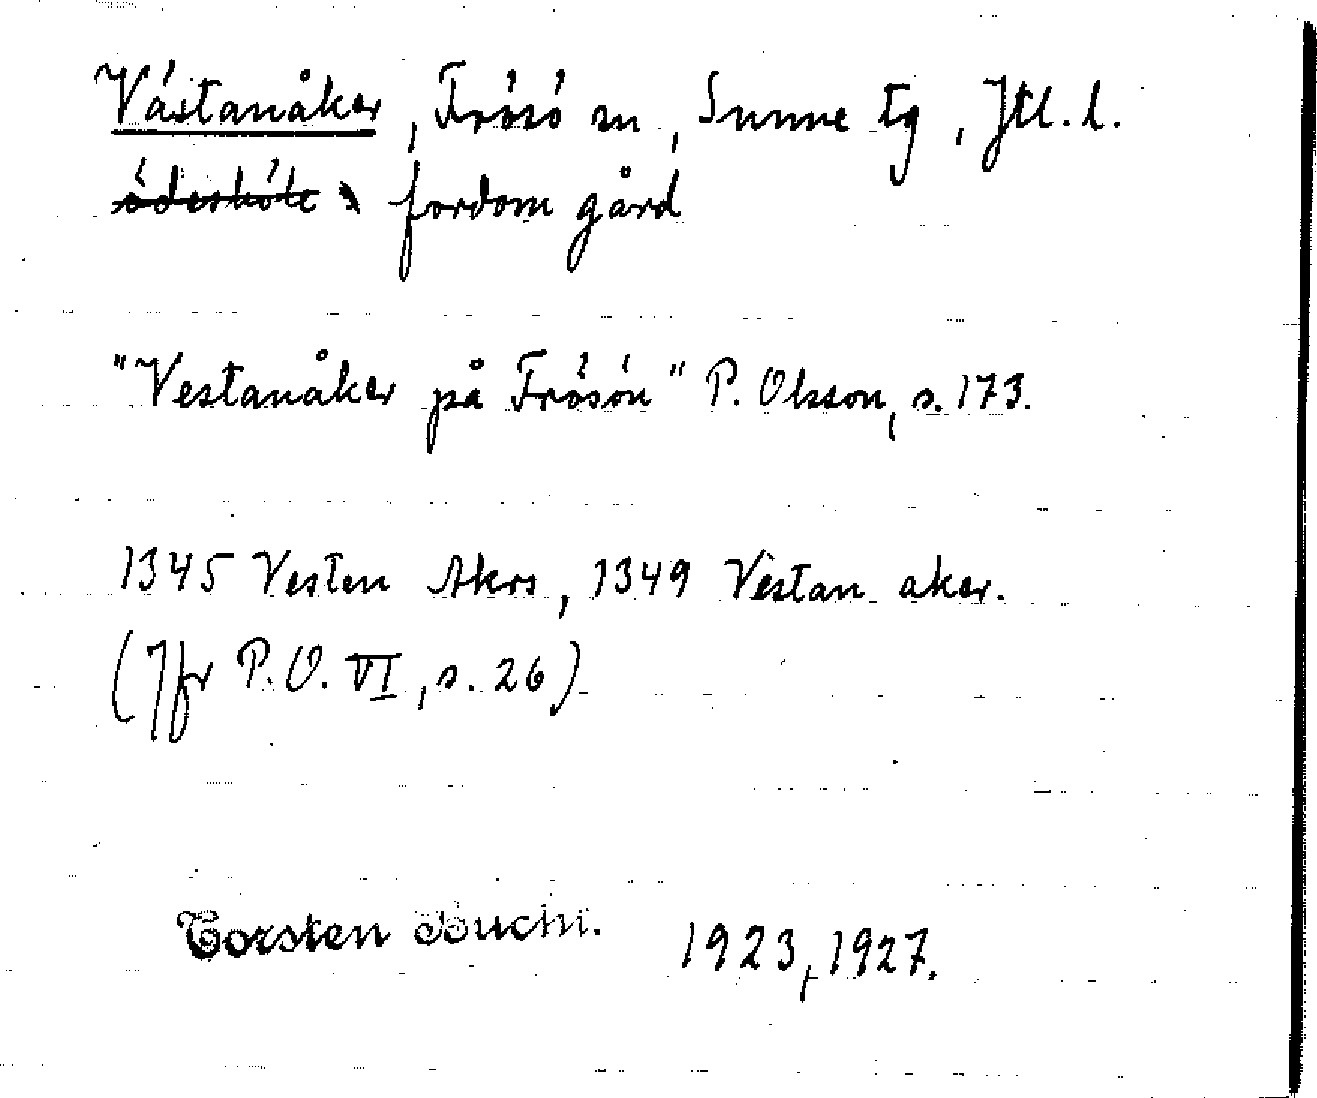 Västanåker, Frösö sn, Sunne tg, Jtl. l.
ödesböle fordom gård
"Vestanåker på Frösön" P. Olsson, s. 173.
1345 Vesten Akrs, 1349 Vestan aker.
(Jfr P.O. VI, s. 26)
Torsten Bucht. 1923, 1927.